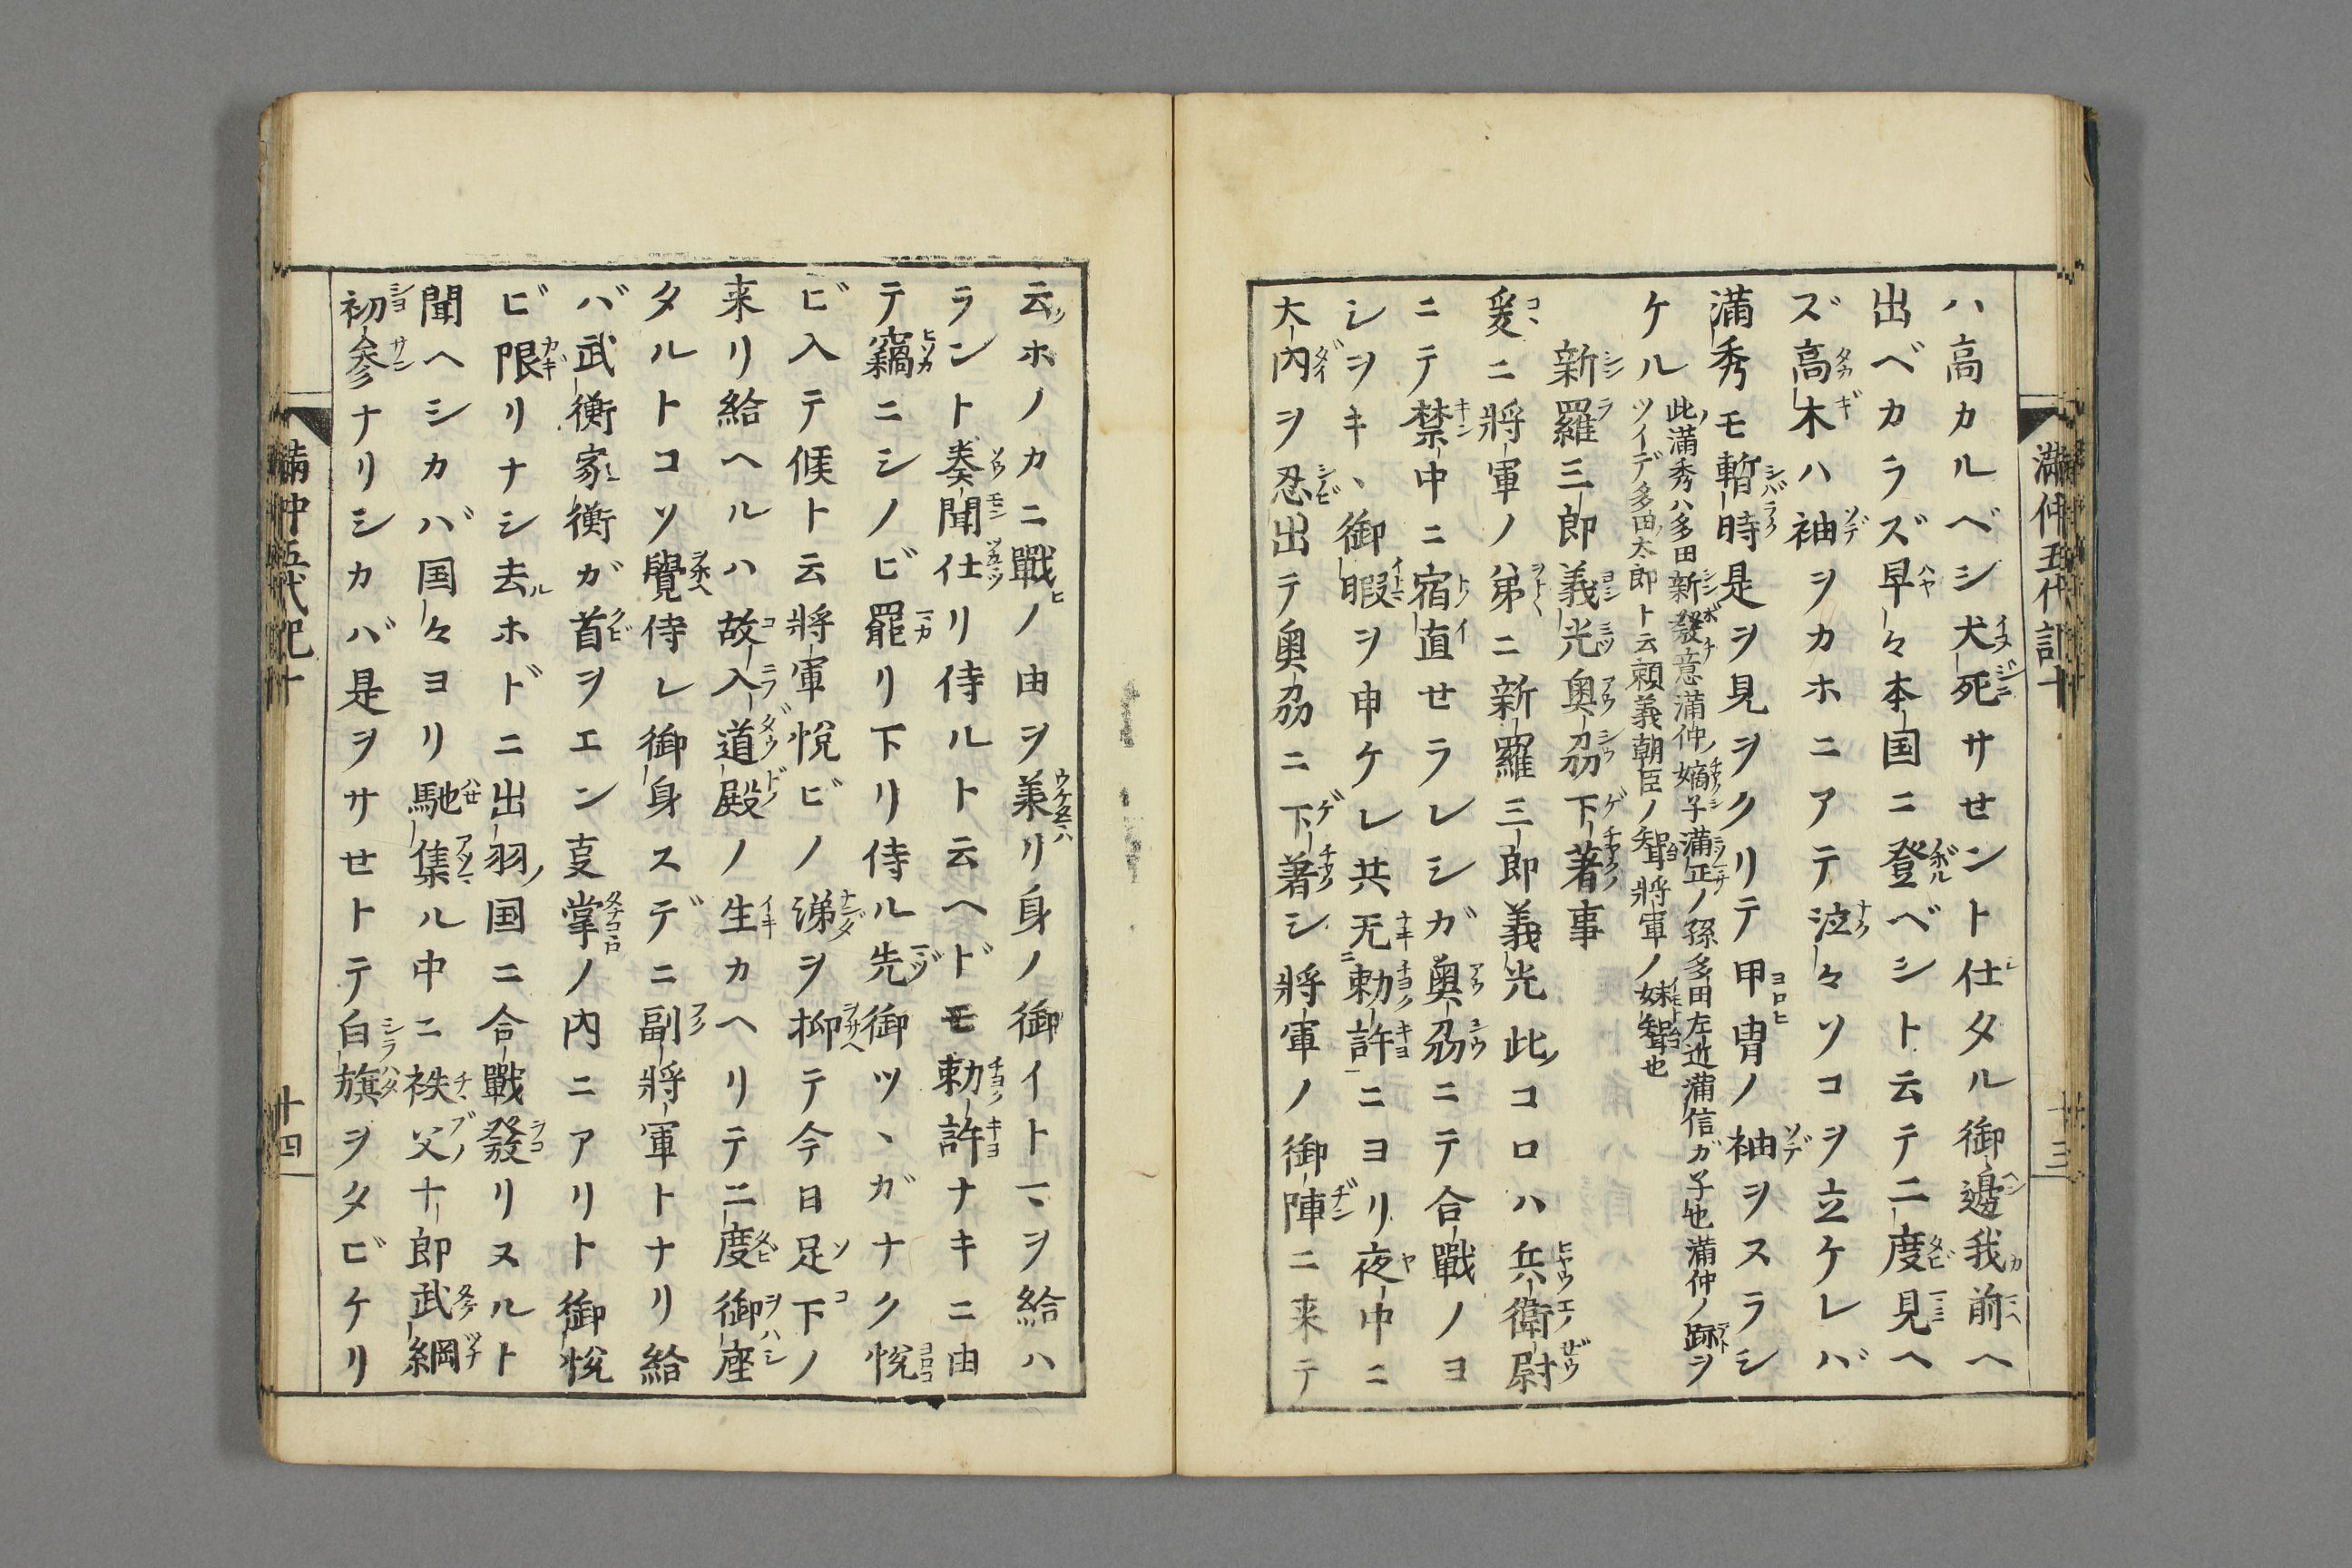 ハ高カルベシ犬死サセント仕タル御邊我前ヘ
出ベカラズ早々本国ニ登ベシト云テ二度見ヘ
ズ高木ハ袖ヲカホニアテ泣々ソコヲ立ケレバ
満秀モ暫時是ヲ見ヲクリテ甲冑ノ袖ヲスラシ
ケル
此満秀ハ多田新發意満仲ノ嫡子満正ノ孫多田左近満信ガ子也満仲ノ跡ヲ
ツイデ多田太郎ト云頼義朝臣ノ聟将軍ノ妹聟也
新羅三郎義光奥刕下著事
爰ニ将軍ノ弟ニ新羅三郎義光此コロハ兵衛尉
ニテ禁中ニ宿直セラレシガ奥刕ニテ合戰ノヨ
シヲキヽ御暇ヲ申ケレ共无勅許ニヨリ夜中ニ
大内ヲ忍出テ奥刕ニ下著シ将軍ノ御陣ニ来テ
満仲五代記十
十三
云ホノカニ戰ノ由ヲ兼リ身ノ御イトマヲ給ハ
ラント奏聞仕リ侍ルト云ヘドモ勅許ナキニ由
テ竊ニシノビ罷リ下リ侍ル先御ツヽガナク悦
ビ入テ候ト云将軍悦ビノ涕ヲ抑テ今日足下ノ
来リ給ヘルハ故入道殿ノ生カヘリテ二度御座
タルトコソ覺侍レ御身スデニ副将軍トナリ給
バ武衡家衡ガ首ヲエン叓掌ノ内ニアリト御悦
ビ限リナシ去ホドニ出羽国ニ合戰發リヌルト
聞ヘシカバ国々ヨリ馳集ル中ニ秩父十郎武綱
初參ナリシカバ是ヲサセトテ白旗ヲタビケリ
満仲五代記十
十四